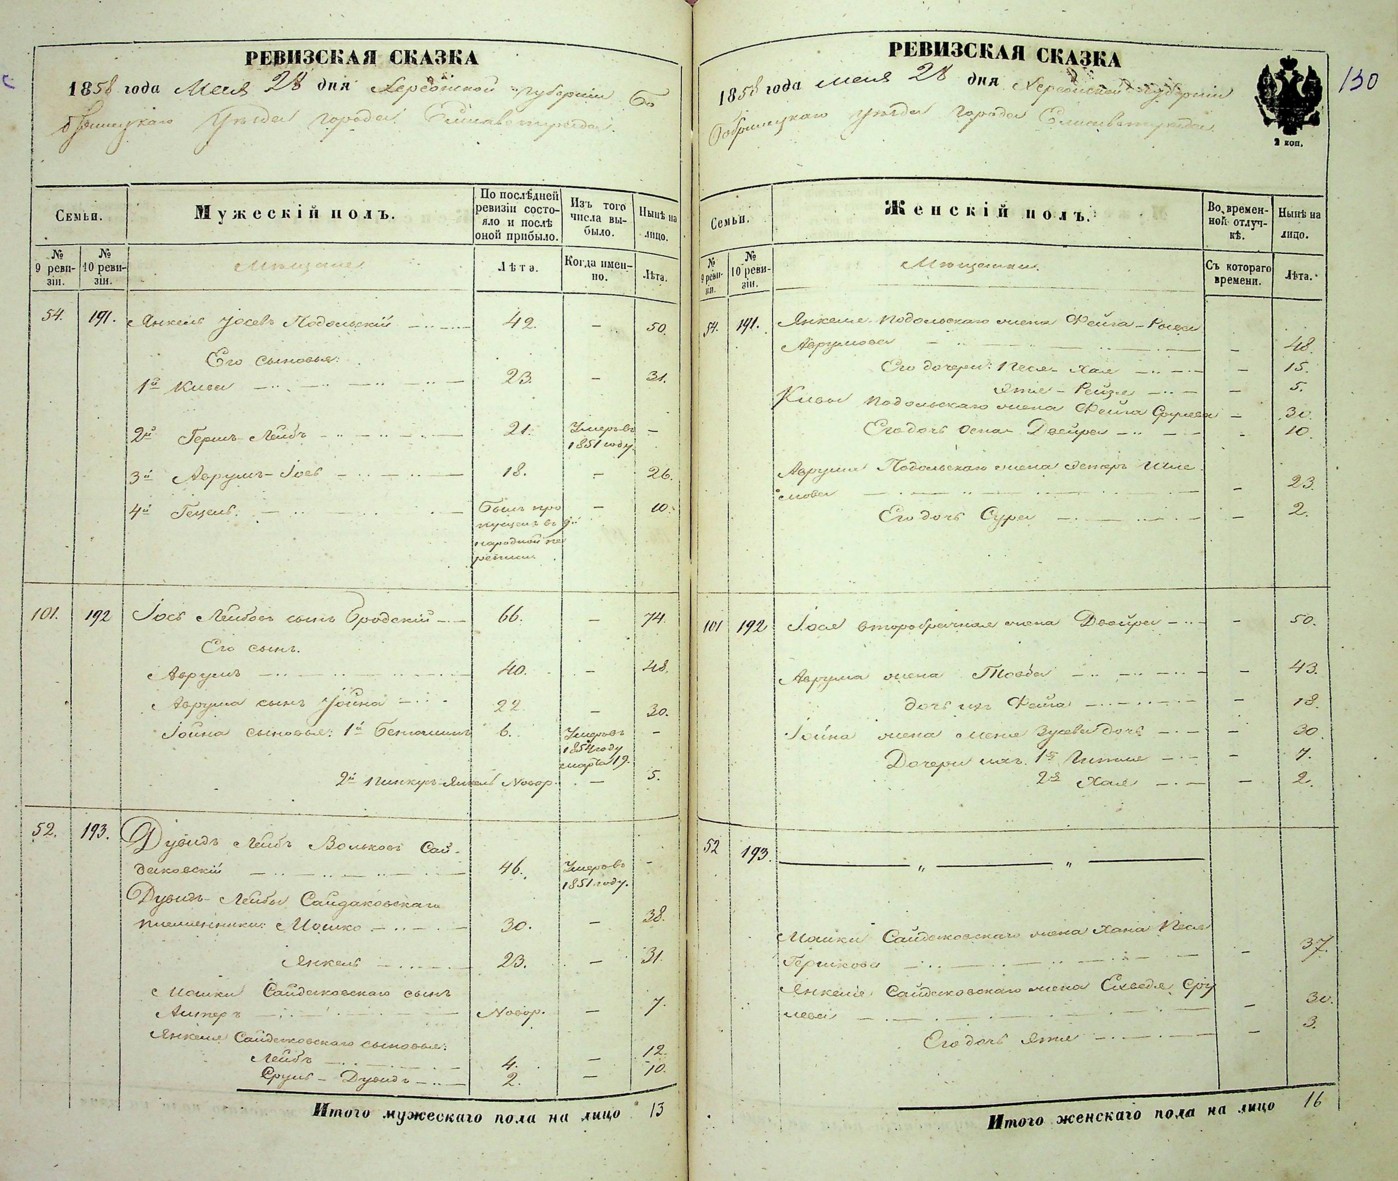 РЕВИЗСКАЯ СКАЗКА
1858 года Мая 28 дня Херсонской губернии Бо
бринецкаго уѣзда города Елисаветграда.
Семьи.
Мужескій полъ.
По послѣдней ревизіи состояло и послѣ оной прибыло.
Изъ того числа выбыло.
Нынѣ на лицо.
№ 9 ревизіи.
№ 10 ревизіи.
Мѣщане
Лѣта.
Когда именно.
Лѣта.
54. 191. Янкель Іосевъ Подольскій 42. – 50.
Его сыновья:
1й Кива 23. – 31.
2й Гершъ-Лейбъ 21. Умеръ въ 1851 году. –
3й Аврумъ-Іосъ 18. – 26.
4й Гецель. Былъ пропущенъ въ 9й народной переписи – 10.
101. 192 Іось Лейбовъ сынъ Бродскій 66. – 74.
Его сынъ.
Аврумъ 40. – 48.
Аврума сынъ Іойна 22. – 30.
Іойна сыновья: 1й Бенюминъ 6. Умеръ въ 1854 году марта 19. –
2й Пинкусъ-Янкель Новор. – 5.
52. 193. Дувидъ Лейбъ Вольковъ Сай-
даковскій 46. Умеръ въ 1851 году. –
Дувидъ-Лейбы Сайдаковскаго
племянники: Мошко 30. – 38.
Янкель 23. – 31.
Мошки Сайдаковскаго сынъ
Ашперъ Новор. – 7.
Янкеля Сайдаковскаго сыновья:
Лейбъ 4. – 12.
Сруль-Дувидъ 2. – 10.
Итого мужескаго пола на лицо 13
РЕВИЗСКАЯ СКАЗКА
1858 года мая 28 дня Херсонской губерніи
Бобринецкаго уѣзда города Елисаветграда
2 коп.
130
Семьи.
Женскій полъ.
Во временной отлучкѣ.
Нынѣ на лицо.
№ 9 ревизіи.
№ 10 ревизіи.
Мѣщанки.
Съ котораго времени.
Лѣта.
54. 191. Янкеля Подольскаго жена Фейга-Рыва
Аврумова – 48.
Его дочери: Песя-Хая – 15.
Ятя-Рейзя – 5.
Кивы Подольскаго жена Фейга Срулева – 30.
Его дочь Двойра – 10.
Аврума Подольскаго жена Эстеръ Шле
мова – 23.
Его дочь Сура – 2.
101 192 Іося второбрачная жена Двойра – 50.
Аврума жена Товба – 43.
дочь ихъ Фейга – 18.
Іойна жена Меня Зусева дочь – 30.
Дочери ихъ. 1я Гитля – 7.
2я Хая – 2.
52 193. „ „
Мошки Сайдаковскаго жена Хана Песя
Гершкова – 37.
Янкеля Сайдаковскаго жена Ехведя Сру
лева – 30.
Его дочь Ятя – 3.
Итого женскаго пола на лицо 16